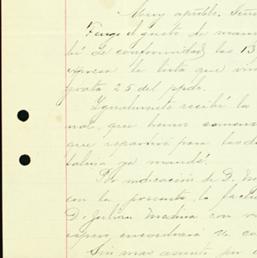 Muy apble. Señor
Tengo el gusto de mani
bí de conformidad, las 13
expresa la lista que vin
prata 25 del ppdo.
Igualmente recibí la
nal, que hemos comen
que repararán para los de
había ya mandé.
Por indicación de D.
con la presente, la factu
D. Julián Medina con v
espero, encontrará de co
Sin mas asunto por